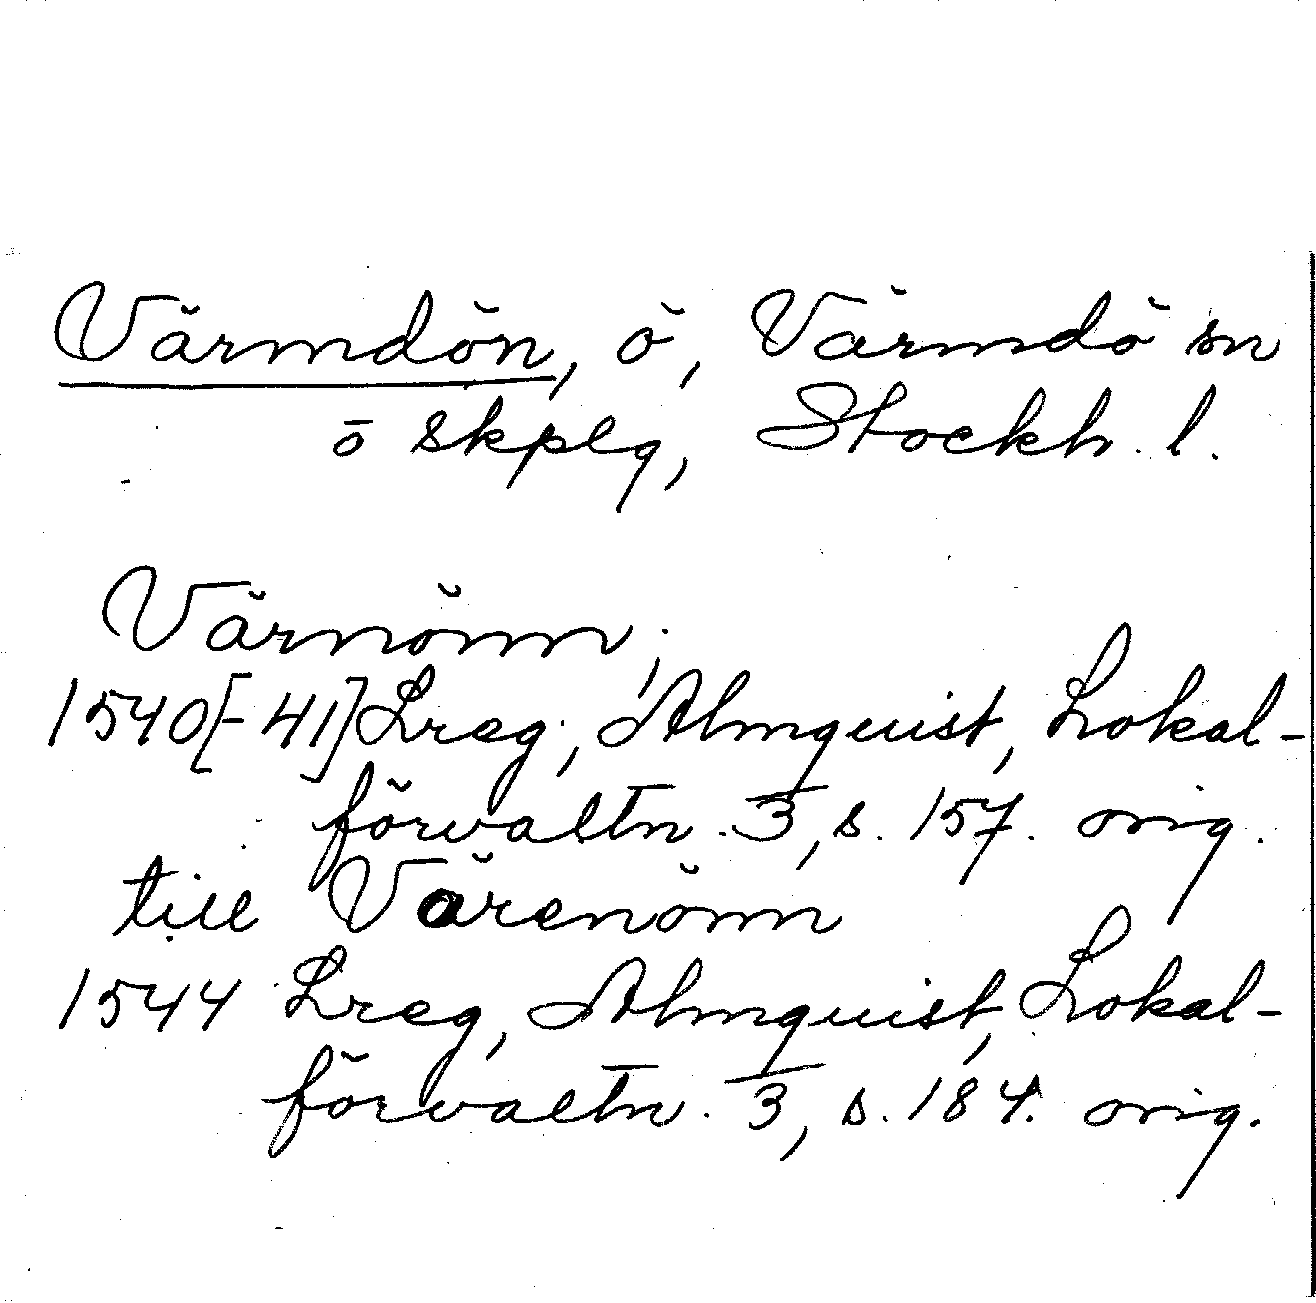 Värmdön, ö, Värmdö sn
o skplg, Stockh. l.
Värnönn;
1540[-41] Lreg; Almquist, Lokal-
förvaltn. 3, s. 157. orig.
till Värenönn
1544 Lreg, Almquist, Lokal-
förvaltn. 3, s. 184. orig.